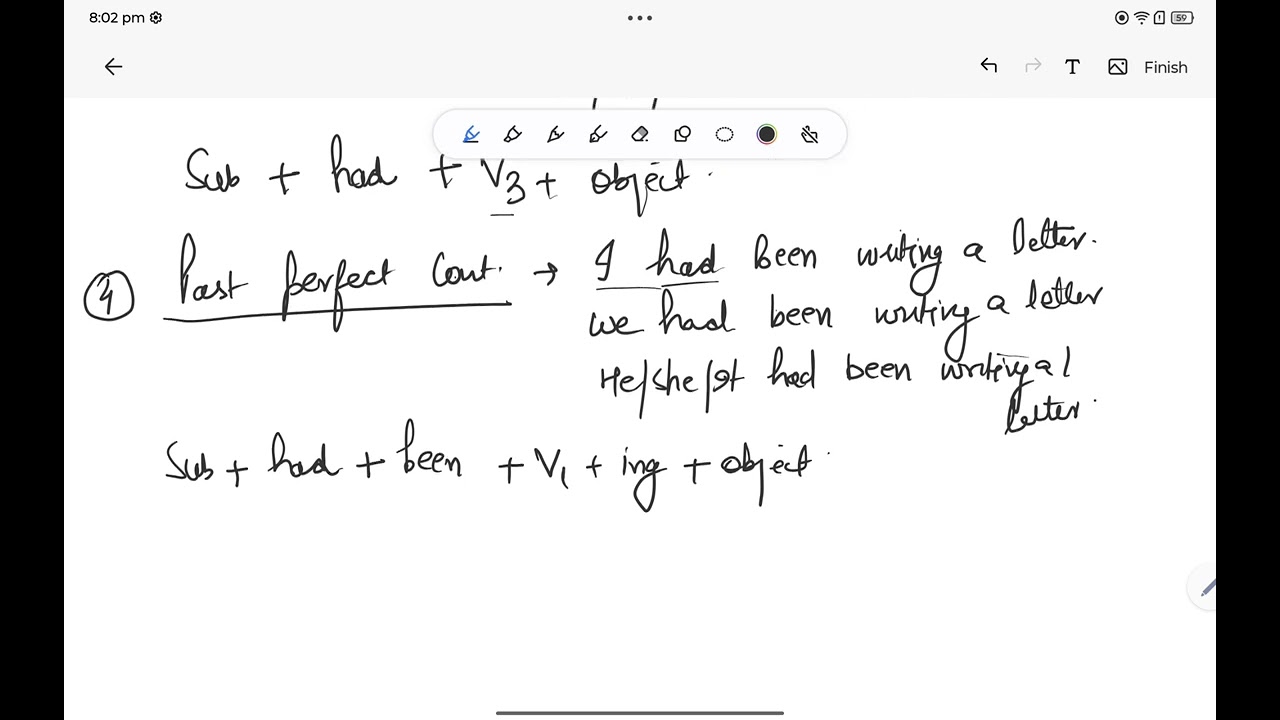 8:02 pm
59
Finish
Sub + had + V3 + object.
4 Past perfect Cont. → I had been writing a letter.
we had been writing a letter
He/she/It had been writing a l
letter.
Sub + had + been + V1 + ing + object.